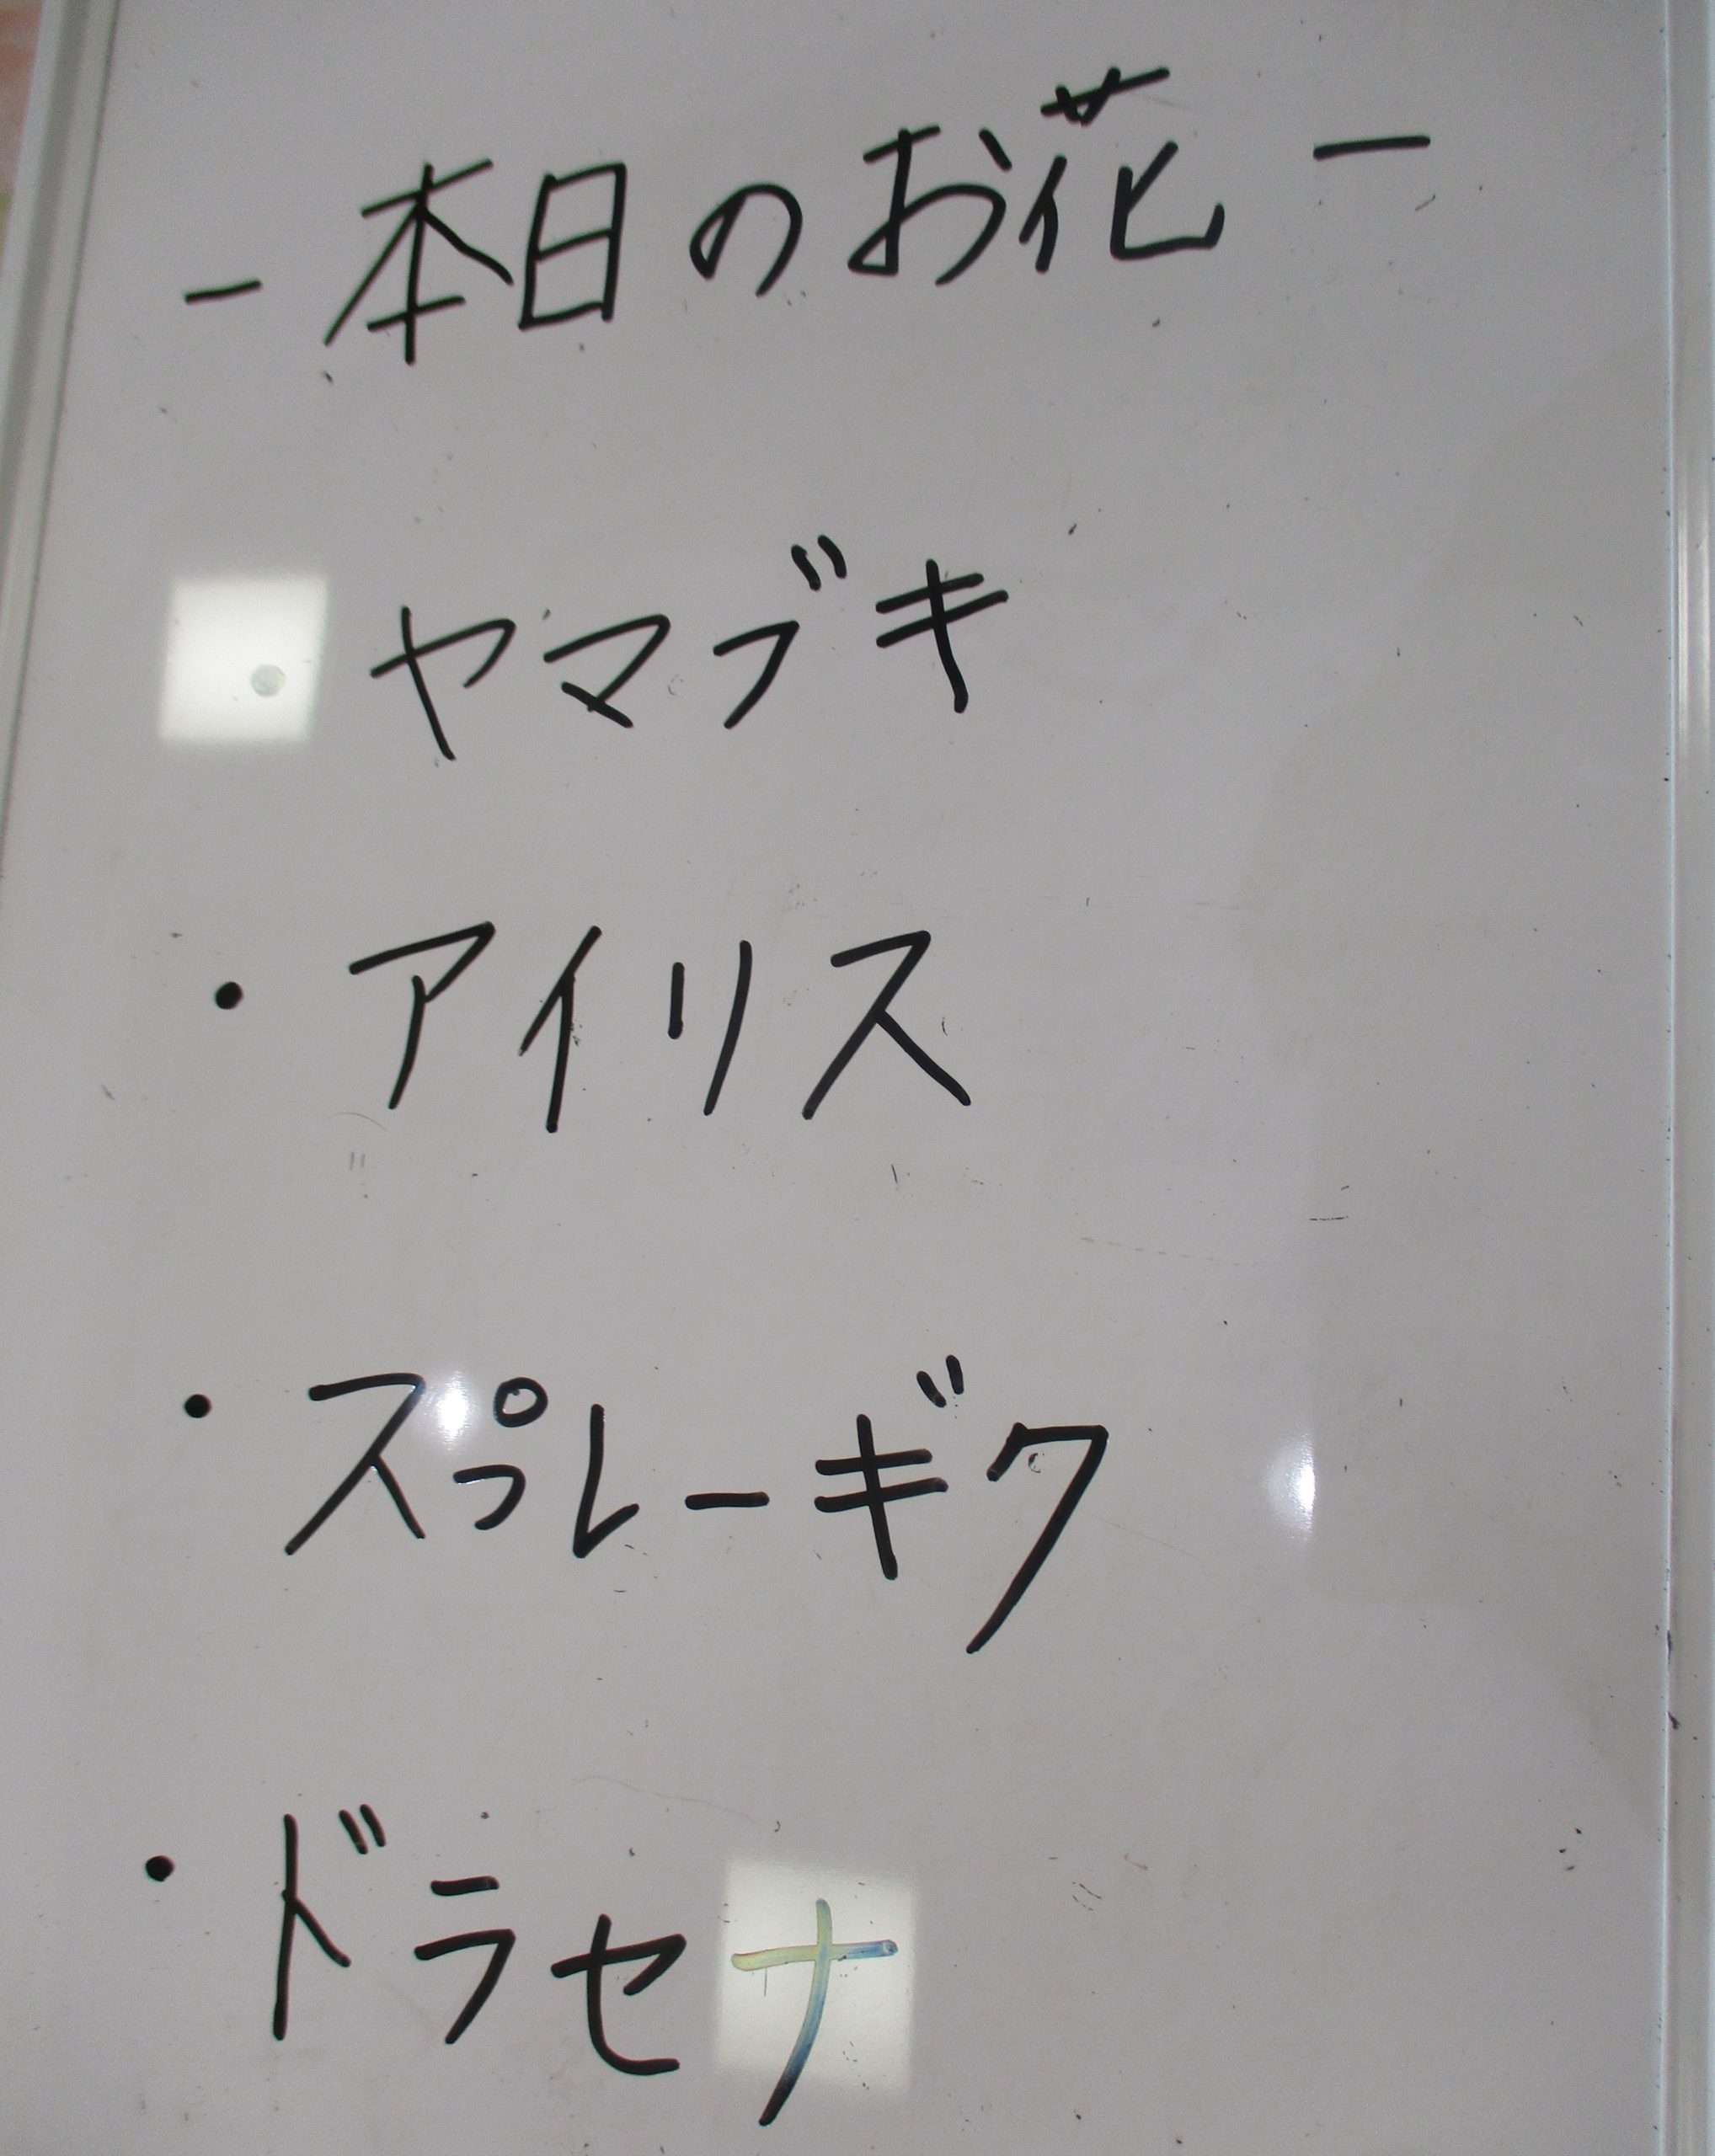 - 本日のお花 -
・ヤマブキ
・アイリス
・スプレーギク
・ドラセナ